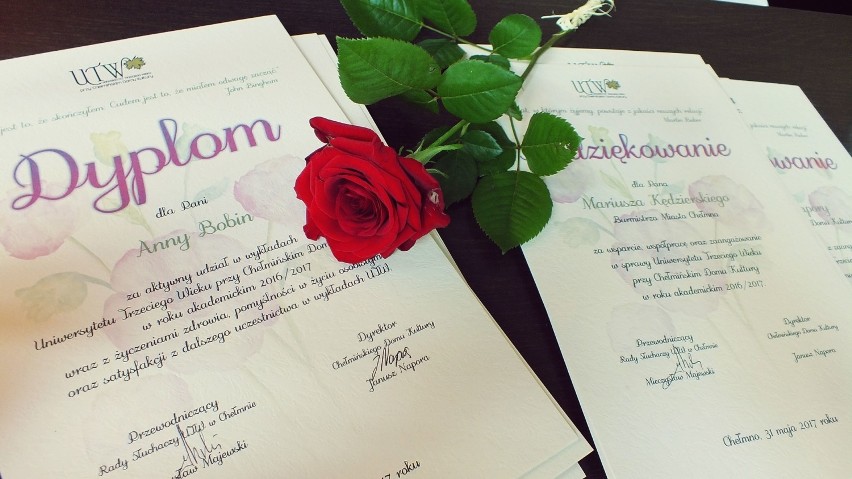 UTW
przy Chełmińskim Domu Kultury
jest to, że skończyłem. Cudem jest to, że miałem odwagę zacząć
John Bingham
Dyplom
dla Pani
Anny Bobin
za aktywny udział w wykładach
Uniwersytetu Trzeciego Wieku przy Chełmińskim Dom
w roku akademickim 2016/2017
wraz z życzeniami zdrowia, pomyślności w życiu osobistym
oraz satysfakcji z dalszego uczestnictwa w wykładach UTW
Dyrektor
Chełmińskiego Domu Kultury
Janusz Napora
Przewodniczący
Rady Słuchaczy UTW w Chełmnie
sław Majewski
017 roku
UTW
dziękowanie
dla Pana
Mariusza Kędzierskiego
Burmistrza Miasta Chełmna
za wsparcie, współpracę oraz zaangażowanie
w sprawy Uniwersytetu Trzeciego Wieku
przy Chełmińskim Domu Kultury
w roku akademickim 2016/2017
Przewodniczący
Rady Słuchaczy UTW w Chełmnie
Mieczysław Majewski
Dyrektor
Chełmińskiego Domu Kultury
Janusz Napora
Chełmno, 31 maja 2017 roku
wanie